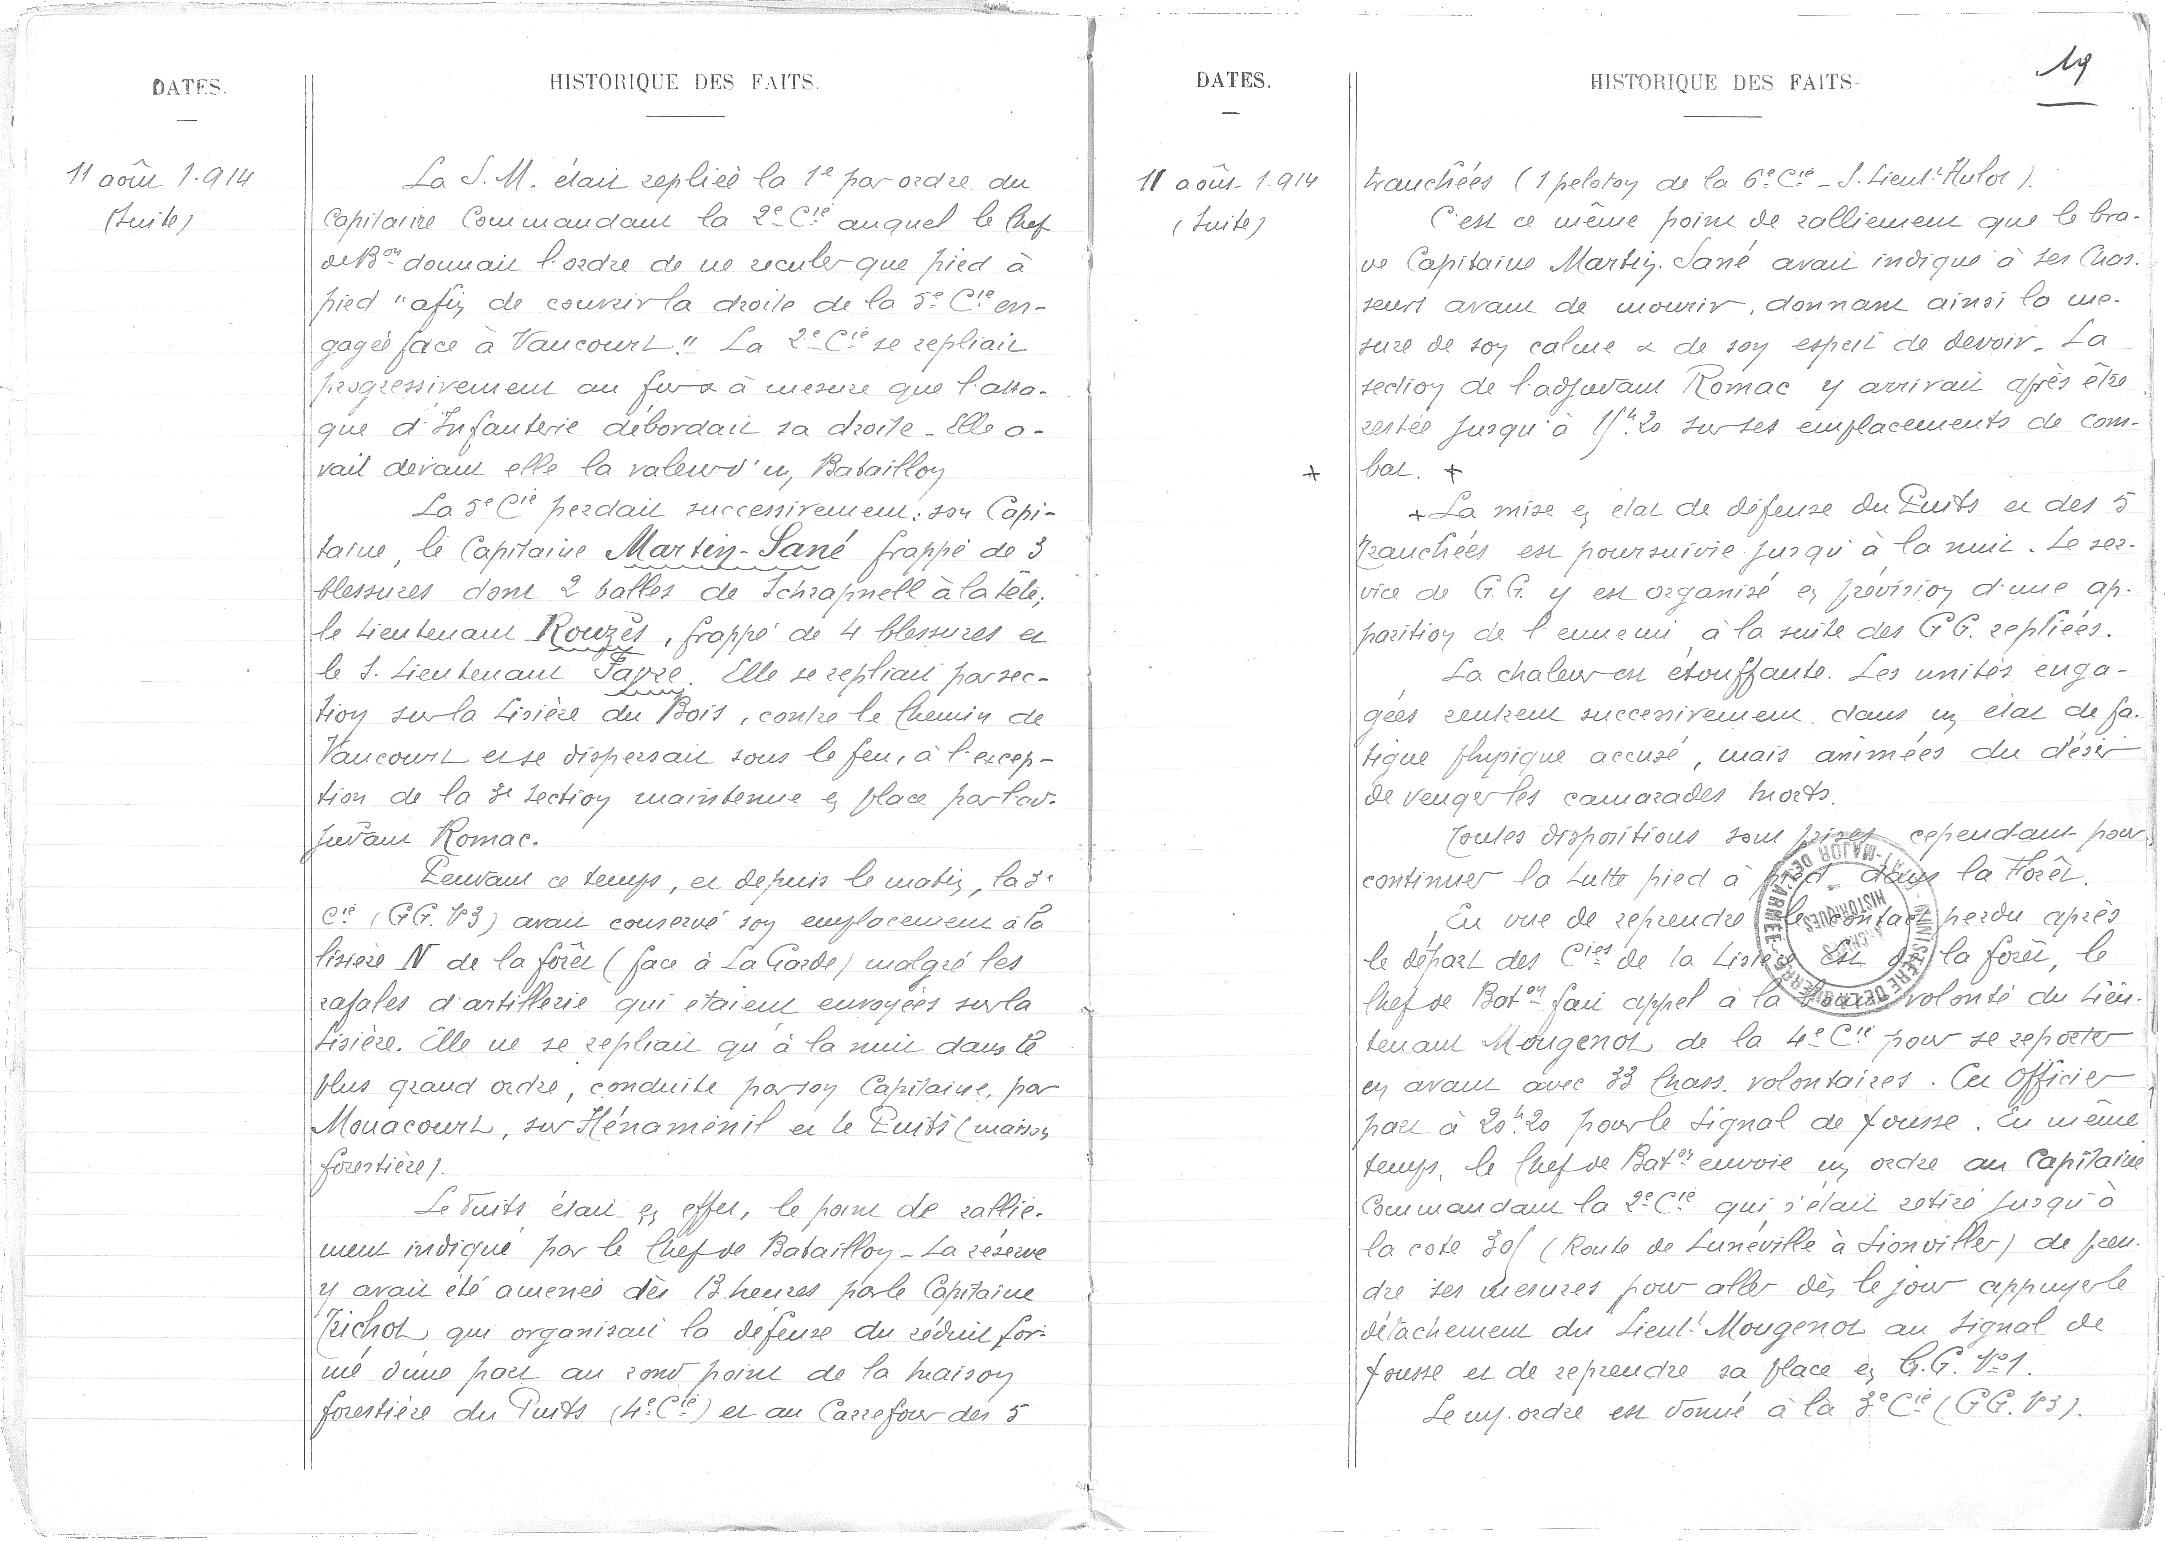 DATES.
HISTORIQUE DES FAITS.
11 août 1.914
(Suite)
La S.M. était repliée la 1e par ordre du
Capitaine Commandant la 2e Cie auquel le Chef
de Bon donnait l'ordre de ne reculer que pied à
pied "afin de couvrir la droite de la 5e Cie en-
gagée face à Vaucourt." La 2e Cie se repliait
progressivement au fur & à mesure que l'atta-
que d'Infanterie débordait sa droite - Elle a-
vait devant elle la valeur d'un Bataillon
La 5e Cie perdait successivement : son Capi-
taine, le Capitaine Martin-Sané frappé de 3
blessures dont 2 balles de Schrapnell à la tête,
le Lieutenant Rouzès, frappé de 4 blessures et
le S. Lieutenant Favre. Elle se repliait par sec-
tion sur la Lisière du Bois, contre le Chemin de
Vaucourt et se dispersait sous le feu, à l'excep-
tion de la 3e Section maintenue en place par l'ad-
judant Romac.
Pendant ce temps, et depuis le matin, la 3e
Cie (GG. N°3) avait conservé son emplacement à la
lisière N de la forêt (face à La Garde) malgré les
rafales d'artillerie qui étaient envoyées sur la
Lisière. Elle ne se repliait qu'à la nuit dans le
plus grand ordre, conduite par son Capitaine, par
Mouacourt, sur Hénaménil et le Puits (maison
forestière).
Le Puits était en effet, le point de rallie-
ment indiqué par le Chef de Bataillon - La réserve
y avait été amenée dès 13 heures par le Capitaine
Trichot qui organisait la défense du réduit for-
mé d'une part au rond point de la maison
forestière du Puits (4e Cie) et au Carrefour des 5
DATES.
HISTORIQUE DES FAITS
19
11 août 1.914
(Suite)
tranchées (1 peloton de la 6e Cie - S. Lieut. Hulot).
C'est ce même point de ralliement que le bra-
ve Capitaine Martin-Sané avait indiqué à ses Chas-
seurs avant de mourir, donnant ainsi la me-
sure de son calme & de son esprit de devoir. La
section de l'adjudant Romac y arrivait après être
restée jusqu'à 15h.20 sur ses emplacements de com-
+ bat. +
+ La mise en état de défense du Puits et des 5
Tranchées est poursuivie jusqu'à la nuit. Le ser-
vice de G.G. y est organisé en prévision d'une ap-
parition de l'ennemi à la suite des GG. repliées.
La chaleur est étouffante. Les unités enga-
gées rentrent successivement dans un état de fa-
tigue physique accusé, mais animées du désir
de venger les camarades morts.
Toutes dispositions sont prises cependant pour
continuer la Lutte pied à pied dans la Forêt.
En vue de reprendre le contact perdu après
le départ des Cies de la Lisière Est de la forêt, le
Chef de Baton fait appel à la bonne volonté du Lieu-
tenant Mougenot de la 4e Cie pour se reporter
en avant avec 33 Chass. volontaires. Cet Officier
part à 20h.20 pour le Signal de Xousse. En même
temps, le Chef de Baton envoie un ordre au Capitaine
Commandant la 2e Cie qui s'était retiré jusqu'à
la cote 305 (Route de Lunéville à Sionviller) de pren-
dre ses mesures pour aller dès le jour appuyer le
détachement du Lieut. Mougenot au Signal de
Xousse et de reprendre sa place en G.G. N°1.
Le m. ordre est donné à la 3e Cie (GG. N°3).
MINISTÈRE DE LA GUERRE - ÉTAT-MAJOR DE L'ARMÉE
ARCHIVES
HISTORIQUES